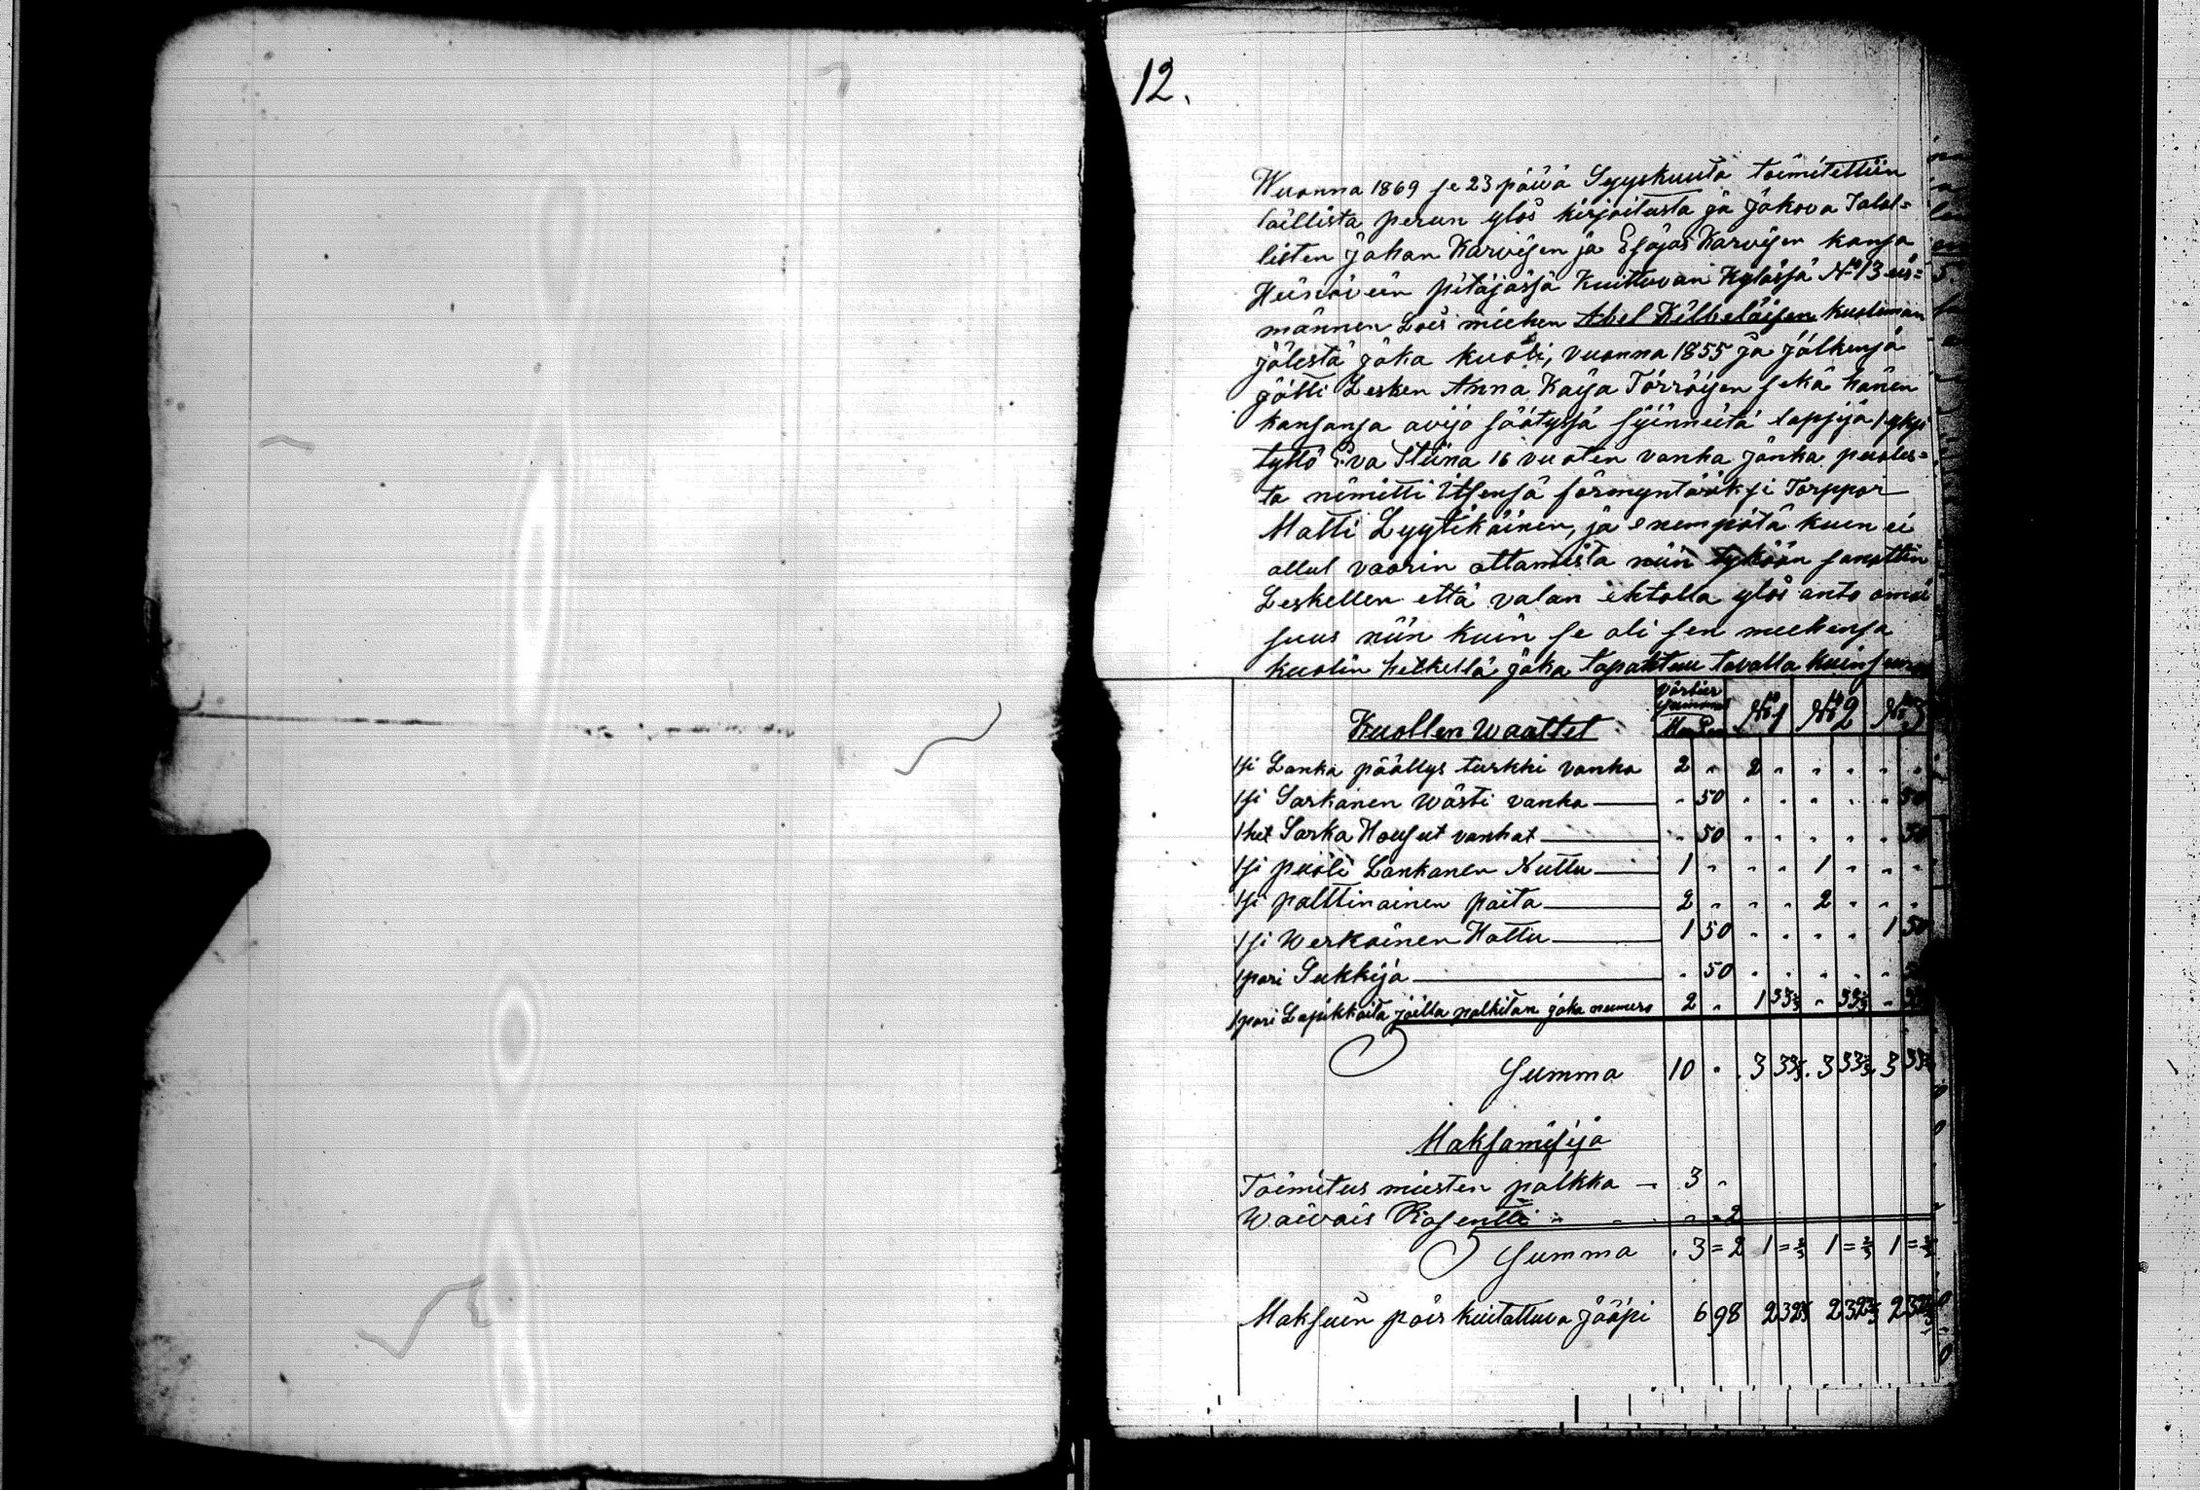 12.
Wuonna 1869 se 23 päivä Syyskuuta toimitettiin
laillista perun ylös kirjoitusta ja Jakova Talol=
listen Johan Karvisen ja Esajas Karvisen kansa
Heinäveen pitäjässä Kuittuvan Kylässä No 13 eis=
männen Lois miehen Abel Kilbeläisen kuoleman
jälestä joka kuoli, vuonna 1855 ja jälkensä
jätti Lesken Anna Kaija Törröisen sekä hänen
kansansa avijo säätyssä siinneitä lapsija 1 yksi
tyttö Eva Stiina 16 vuoten vanha jonka puoles=
ta nimitti itsensäförmyntäriksi Torppor
Matti Lyytikäinen, ja enempätä kuin ei
ollut vaarin ottamista niin tyköän sanottiin
Leskellen että valan ehtolla ylös anto omai
suus niin kuin se oli sen miehensä
kuolin hetkellä joka tapahtuu tavalla kuin seura
Kuollen Waattet Värtin Summa No 1 No 2 No 3
Mar Pen
1 si Lanka päällys turkki vanha 2 " 2 " " " " "
1 si Sarkanen Wästi vanha " 50 " " " " " 50
1 het Sarka Housut vanhat " 50 " " " " " 50
1 si puoli Lankanen Nuttu 1 " " " 1 " " "
1 si palttinainen paita 2 " " " 2 " " "
1 si Werkainen Hattu 1 50 " " " " 1 50
1 pari Sukkija " 50 " " " " " 50
1 pari Lapikkaita joilla palkitan joka numero 2 " 1 33⅓ " 33⅓ " 33⅓
Summa 10 " 3 33⅓ 3 33⅓ 3 33⅓
Maksamisija
Toimitus miesten palkka 3 "
Waivais Rosentti " " 2
Summa 3 = 2 1 = ⅔ 1 = ⅔ 1 = ⅔
Maksuin pois kuitattuva Jääpi 6 98 2 32⅔ 2 32⅔ 2 32⅔